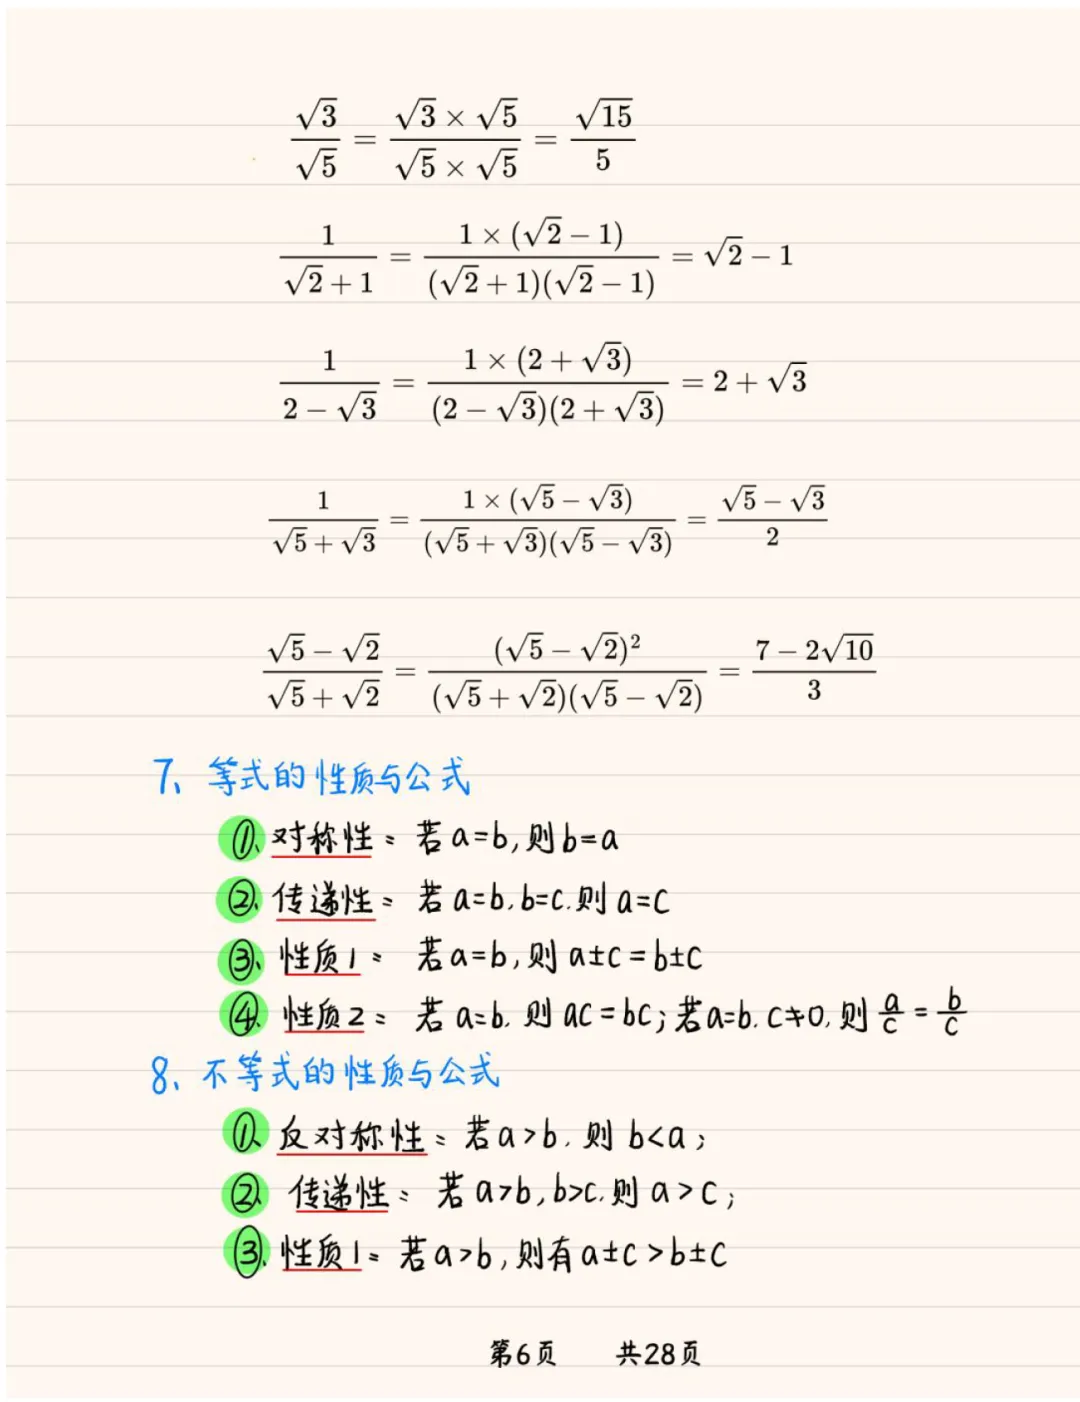 √3/√5 = (√3 × √5)/(√5 × √5) = √15/5
1/(√2 + 1) = (1 × (√2 − 1))/((√2 + 1)(√2 − 1)) = √2 − 1
1/(2 − √3) = (1 × (2 + √3))/((2 − √3)(2 + √3)) = 2 + √3
1/(√5 + √3) = (1 × (√5 − √3))/((√5 + √3)(√5 − √3)) = (√5 − √3)/2
(√5 − √2)/(√5 + √2) = (√5 − √2)²/((√5 + √2)(√5 − √2)) = (7 − 2√10)/3
7、等式的性质与公式
①、对称性：若a=b,则b=a
②、传递性：若a=b,b=c,则a=c
③、性质1：若a=b,则a±c=b±c
④、性质2：若a=b,则ac=bc;若a=b,c≠0,则a/c=b/c
8、不等式的性质与公式
①、反对称性：若a>b,则b<a;
②、传递性：若a>b,b>c,则a>c;
③、性质1：若a>b,则有a±c>b±c
第6页 共28页